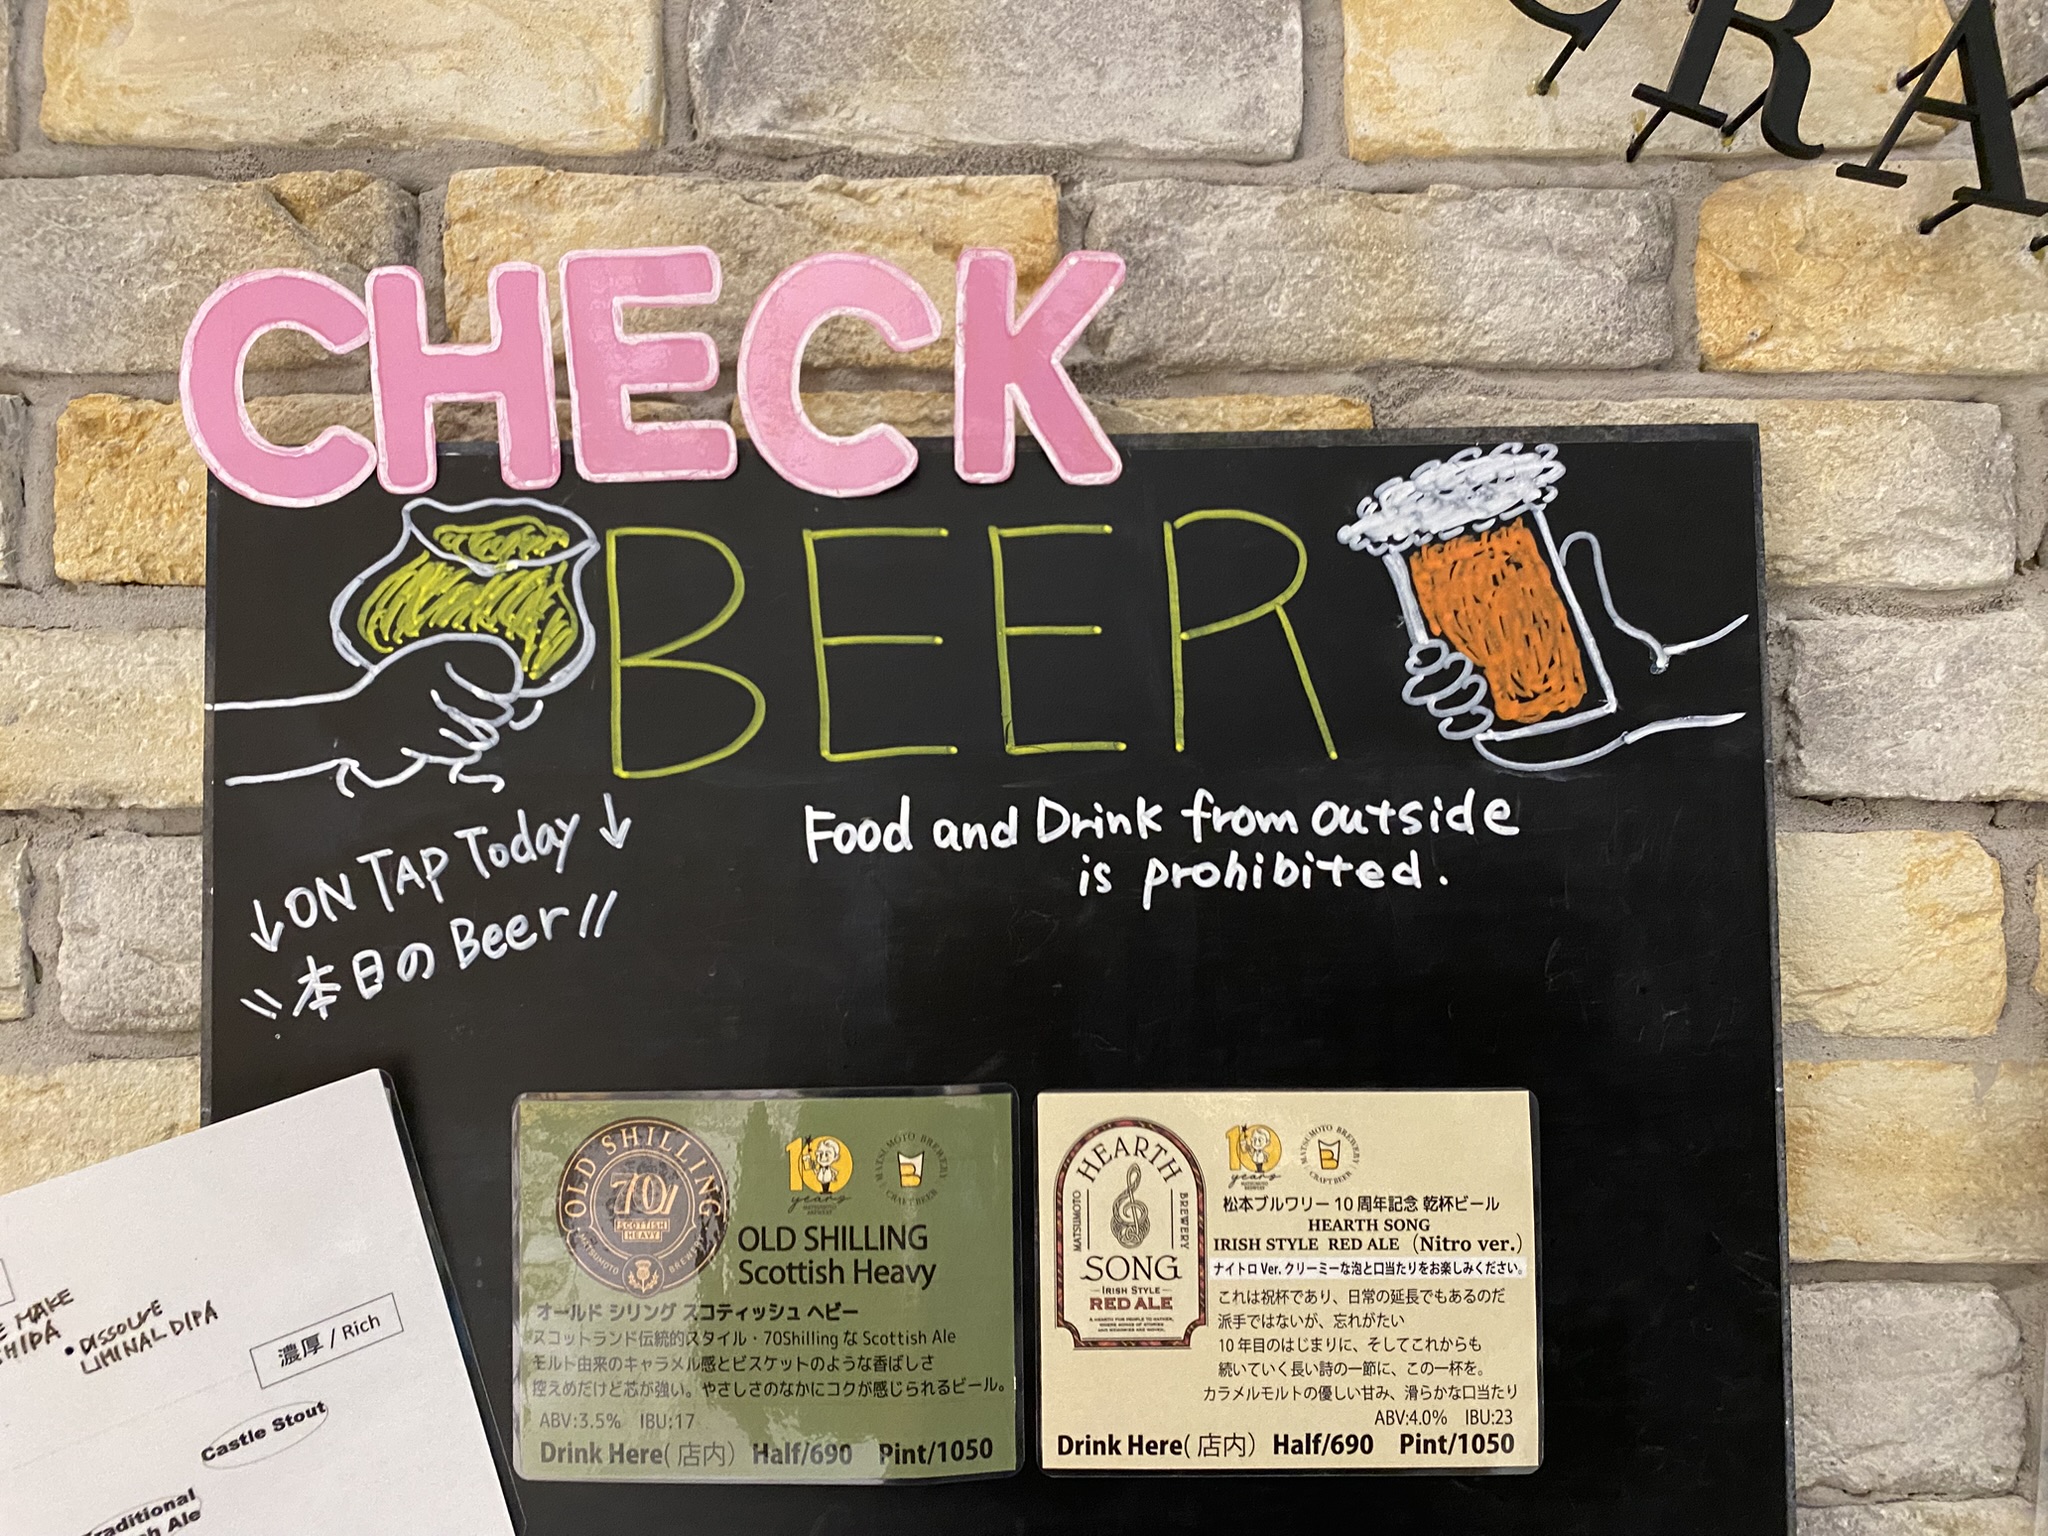 CRA
CHECK
BEER
↓ON TAP Today↓
本日のBeer
Food and Drink from outside
is prohibited.
MAKE
HIPA
• DISSOLVE
LIMINAL DIPA
濃厚 / Rich
Castle Stout
raditional
h Ale
OLD SHILLING
70/
SCOTTISH
HEAVY
MATSUMOTO BREWERY
10
years
MATSUMOTO BREWERY
CRAFT BEER
OLD SHILLING
Scottish Heavy
オールド シリング スコティッシュ ヘビー
スコットランド伝統的スタイル・70Shilling な Scottish Ale
モルト由来のキャラメル感とビスケットのような香ばしさ
控えめだけど芯が強い。やさしさのなかにコクが感じられるビール。
ABV:3.5% IBU:17
Drink Here(店内) Half/690 Pint/1050
HEARTH
MATSUMOTO
BREWERY
SONG
IRISH STYLE
RED ALE
10
years
MATSUMOTO BREWERY
CRAFT BEER
松本ブルワリー 10 周年記念 乾杯ビール
HEARTH SONG
IRISH STYLE RED ALE (Nitro ver.)
ナイトロ Ver. クリーミーな泡と口当たりをお楽しみください。
これは祝杯であり、日常の延長でもあるのだ
派手ではないが、忘れがたい
10 年目のはじまりに、そしてこれからも
続いていく長い詩の一節に、この一杯を。
カラメルモルトの優しい甘み、滑らかな口当たり
ABV:4.0% IBU:23
Drink Here(店内) Half/690 Pint/1050